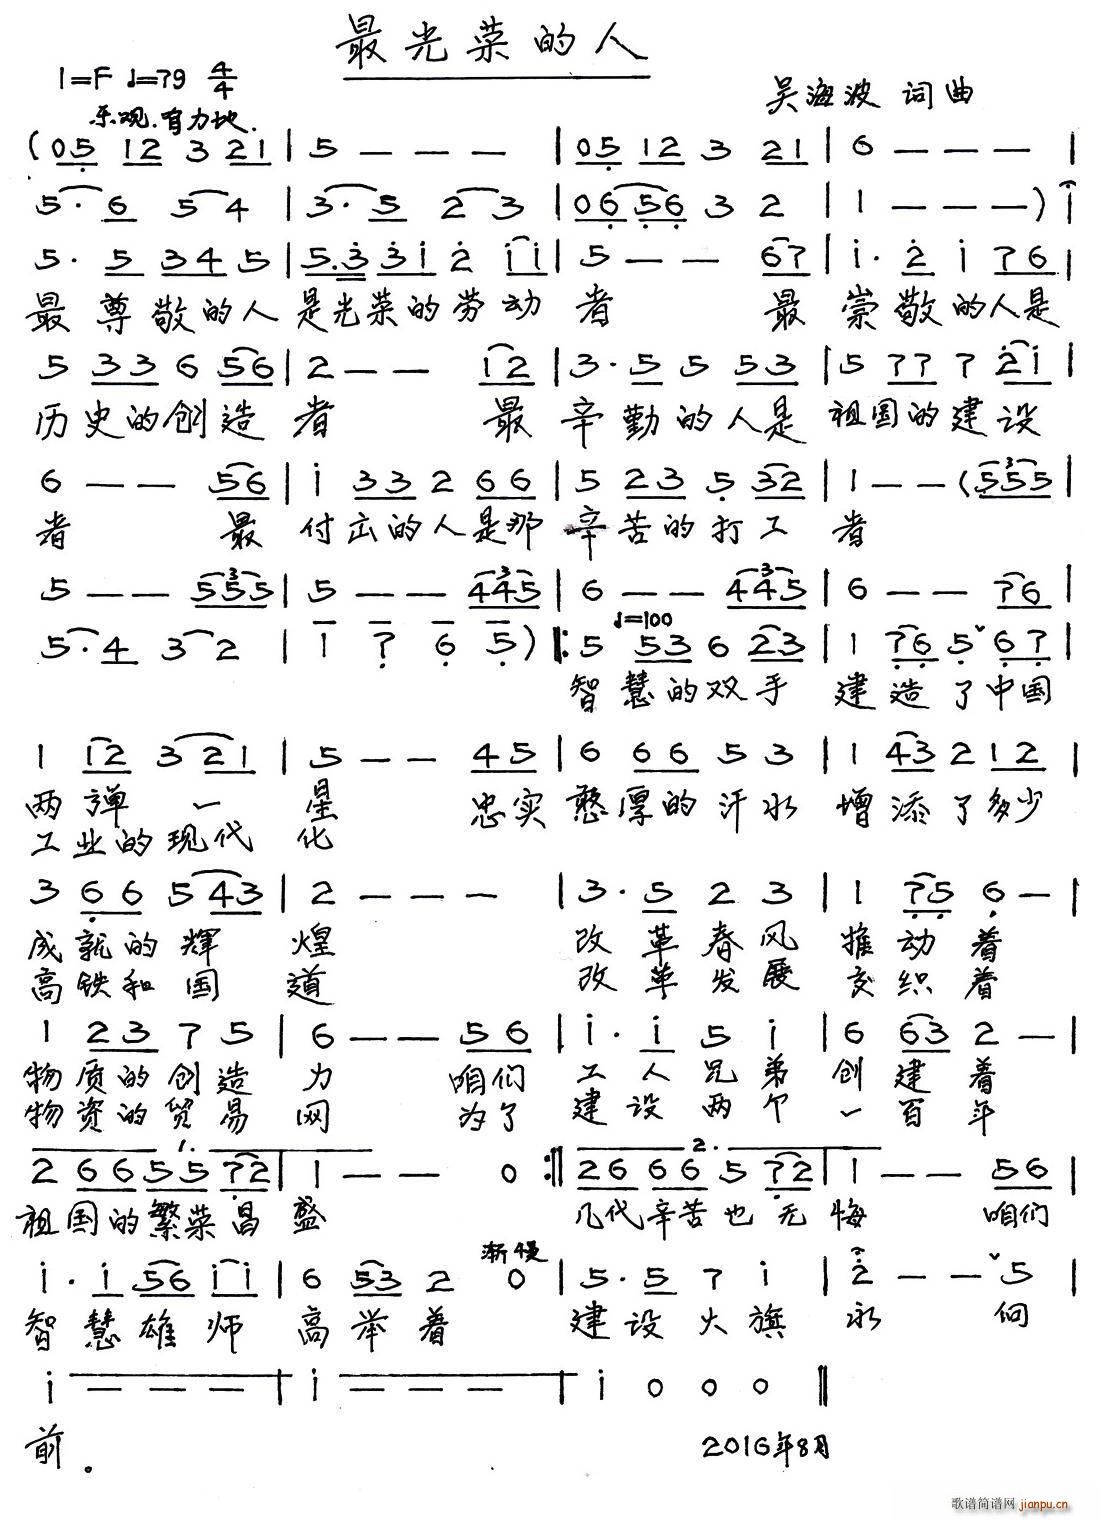 最光荣的人
1=F ♩=79 4/4
吴海波 词曲
乐观.有力地.
(05 12 3 21 | 5 — — — | 05 12 3 21 | 6 — — — |
5· 6 5 4 | 3· 5 2 3 | 06 56 3 2 | 1 — — —) i
5· 5 34 5 | 5.3 31 2 i i | 5 — — 67 | i· 2 i 76 |
最尊敬的人 是光荣的劳动 者 最 崇敬的人是
5 33 6 56 | 2 — — 12 | 3· 5 5 53 | 5 77 7 2i |
历史的创造 者 最 辛勤的人是 祖国的建设
6 — — 56 | i 33 2 66 | 5 23 5 32 | 1 — — (555 |
者 最 付出的人是那 辛苦的打工 者
5 — — 555 | 5 — — 445 | 6 — — 445 | 6 — — 76 |
♩=100
5· 4 3 2 | 1 7 6 5) ‖: 5 53 6 23 | 1 76 5 67 |
智慧的双手 建造了中国
1 12 3 21 | 5 — — 45 | 6 66 5 3 | 1 43 2 12 |
两弹一星 忠实 憨厚的汗水 增添了多少
工业的现代化
3 66 5 43 | 2 — — — | 3· 5 2 3 | 1 75 6 — |
成就的辉煌 改革春风 推动着
高铁和国道 改革发展 交织着
1 23 7 5 | 6 — — 56 | i· i 5 i | 6 63 2 — |
物质的创造力 咱们 工人兄弟 创建着
物资的贸易网 为了 建设两个一百年
1. 2.
2 66 55 72 | 1 — — 0 :‖ 26 66 5 72 | 1 — — 56 |
祖国的繁荣昌盛 几代辛苦也无悔 咱们
渐慢
i· i 56 i i | 6 53 2 0 | 5· 5 7 i | 2 — — 5 |
智慧雄师 高举着 建设大旗 永 向
i — — — | i — — — | i 0 0 0 ‖
前。
2016年8月
歌谱简谱网 jianpu.cn